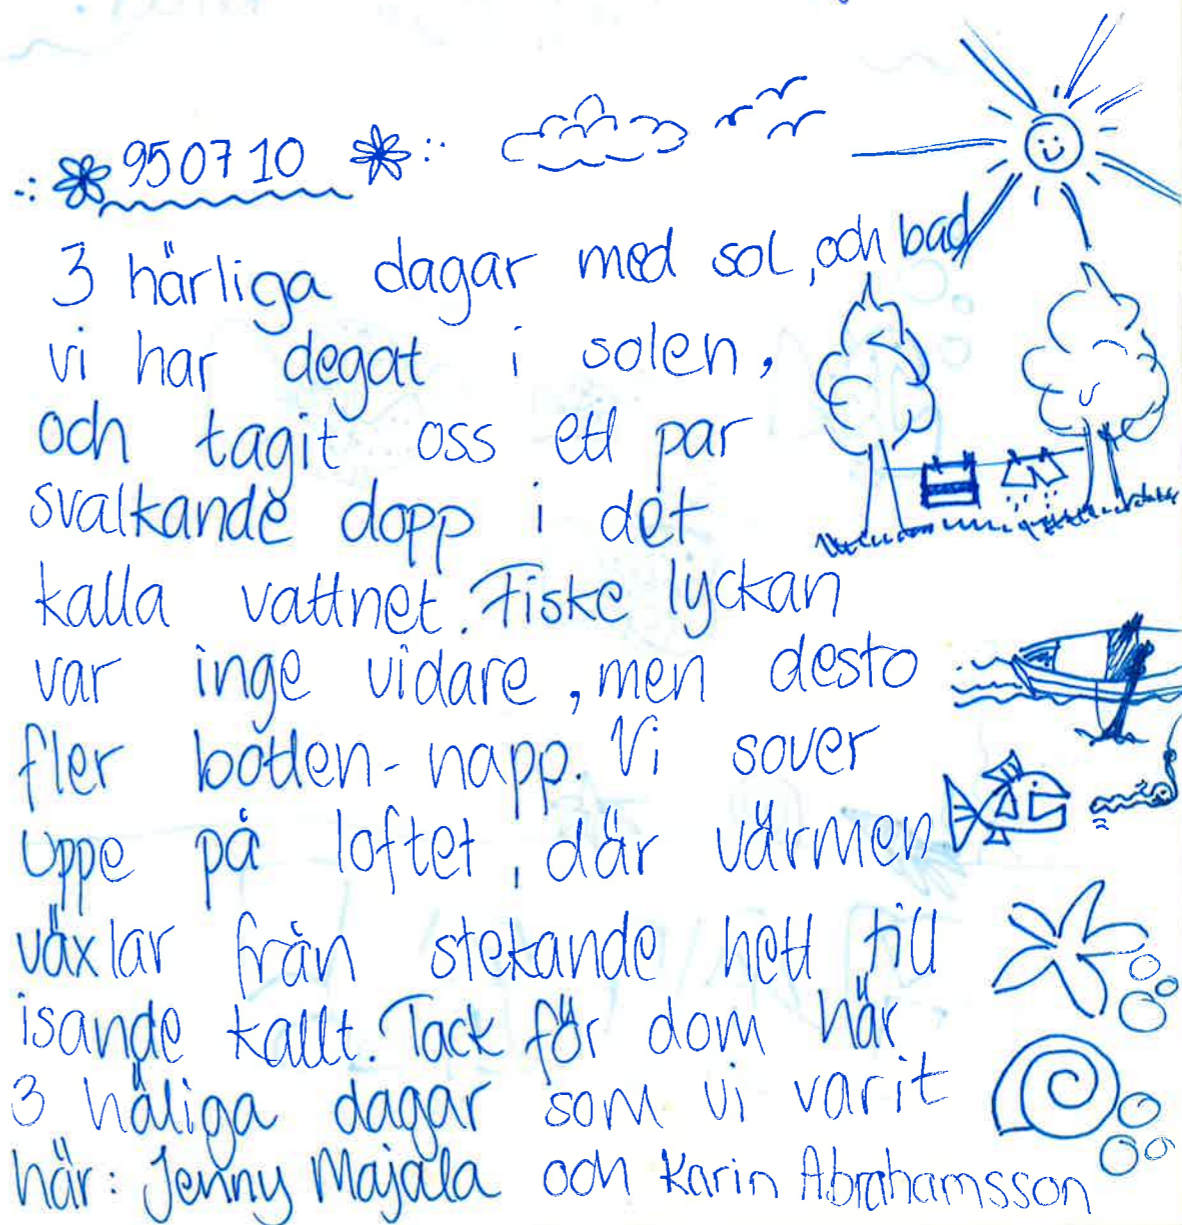 950710
3 härliga dagar med sol, och bad
vi har degat i solen,
och tagit oss ett par
svalkande dopp i det
kalla vattnet. Fiske lyckan
var inge vidare, men desto
fler botten-napp. Vi sover
uppe på loftet, där värmen
växlar från stekande hett till
isande kallt. Tack för dom här
3 häliga dagar som vi varit
här: Jenny Majala och Karin Abrahamsson